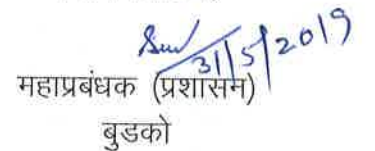 31/5/2019
महाप्रबंधक (प्रशासन)
बुडको